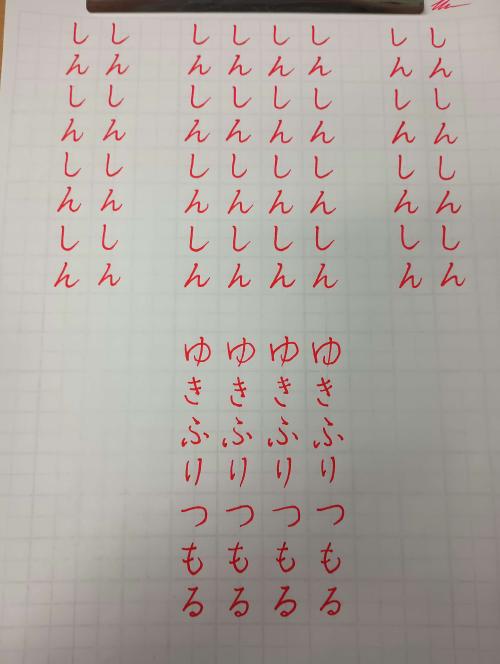 しんしんしんしん
しんしんしんしん
しんしんしんしん　ゆきふりつもる
しんしんしんしん　ゆきふりつもる
しんしんしんしん　ゆきふりつもる
しんしんしんしん　ゆきふりつもる
しんしんしんしん
しんしんしんしん